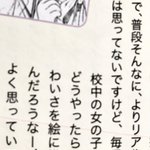 で、普段そんなに、よりリアル
は思ってないですけど、毎
校中の女の子
どうやったら
わいさを絵に
んだろうなー、
よく思ってい